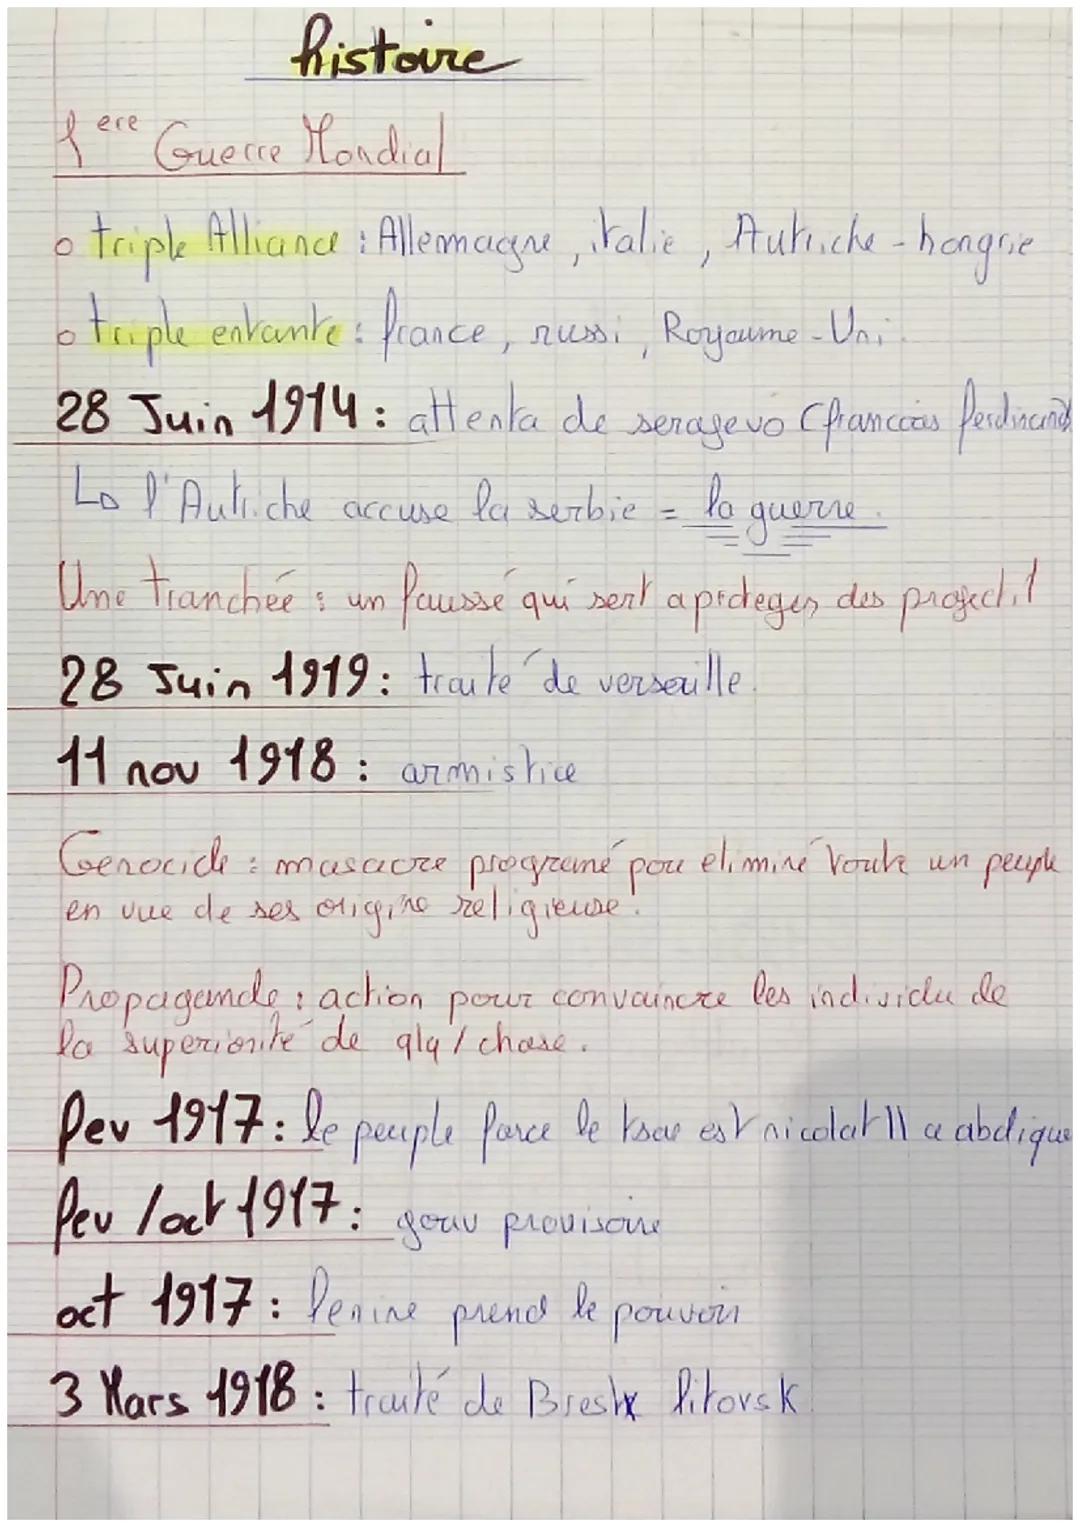 histoire
1ere Guerre Mondial
o triple Alliance : Allemagne, italie, Autriche - hongrie
o triple entante : france, russi, Royaume - Uni.
28 Juin 1914 : attenta de seragevo (francois ferdinand)
↳ l'Autriche accuse la serbie = la guerre.
Une tranchée : un faussé qui sert a proteger des projectil
28 Juin 1919 : traité de verseille.
11 nov 1918 : armistice
Genocide : masacre programé pour elimine toute un peuple
en vue de ses origine religieuse.
Propagande : action pour convaincre les individu de
la superiorité de qlq / chose.
fev 1917 : le peuple force le tsar est nicolat II a abdique
fev / oct 1917 : gouv provisoire
oct 1917 : lenine prend le pouvoir
3 Mars 1918 : traité de Brest litovsk.